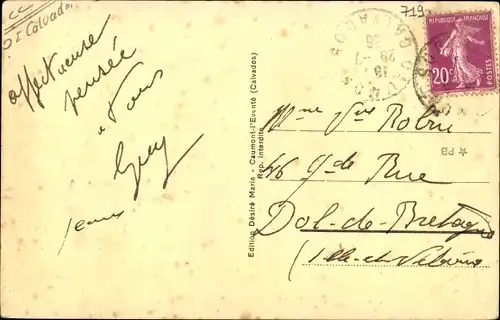 CC
DI Calvados
719
affectueuse
pensée
à tous
Edition Désiré Marie - Caumont-l'Eventé (Calvados)
Rep. interdite
REPUBLIQUE FRANÇAISE
20c
POSTES
CALVADOS
Mme Robin
46 Gde Rue
Dol-de-Bretagne
(Ille-et-Vilaine)
☆ PB